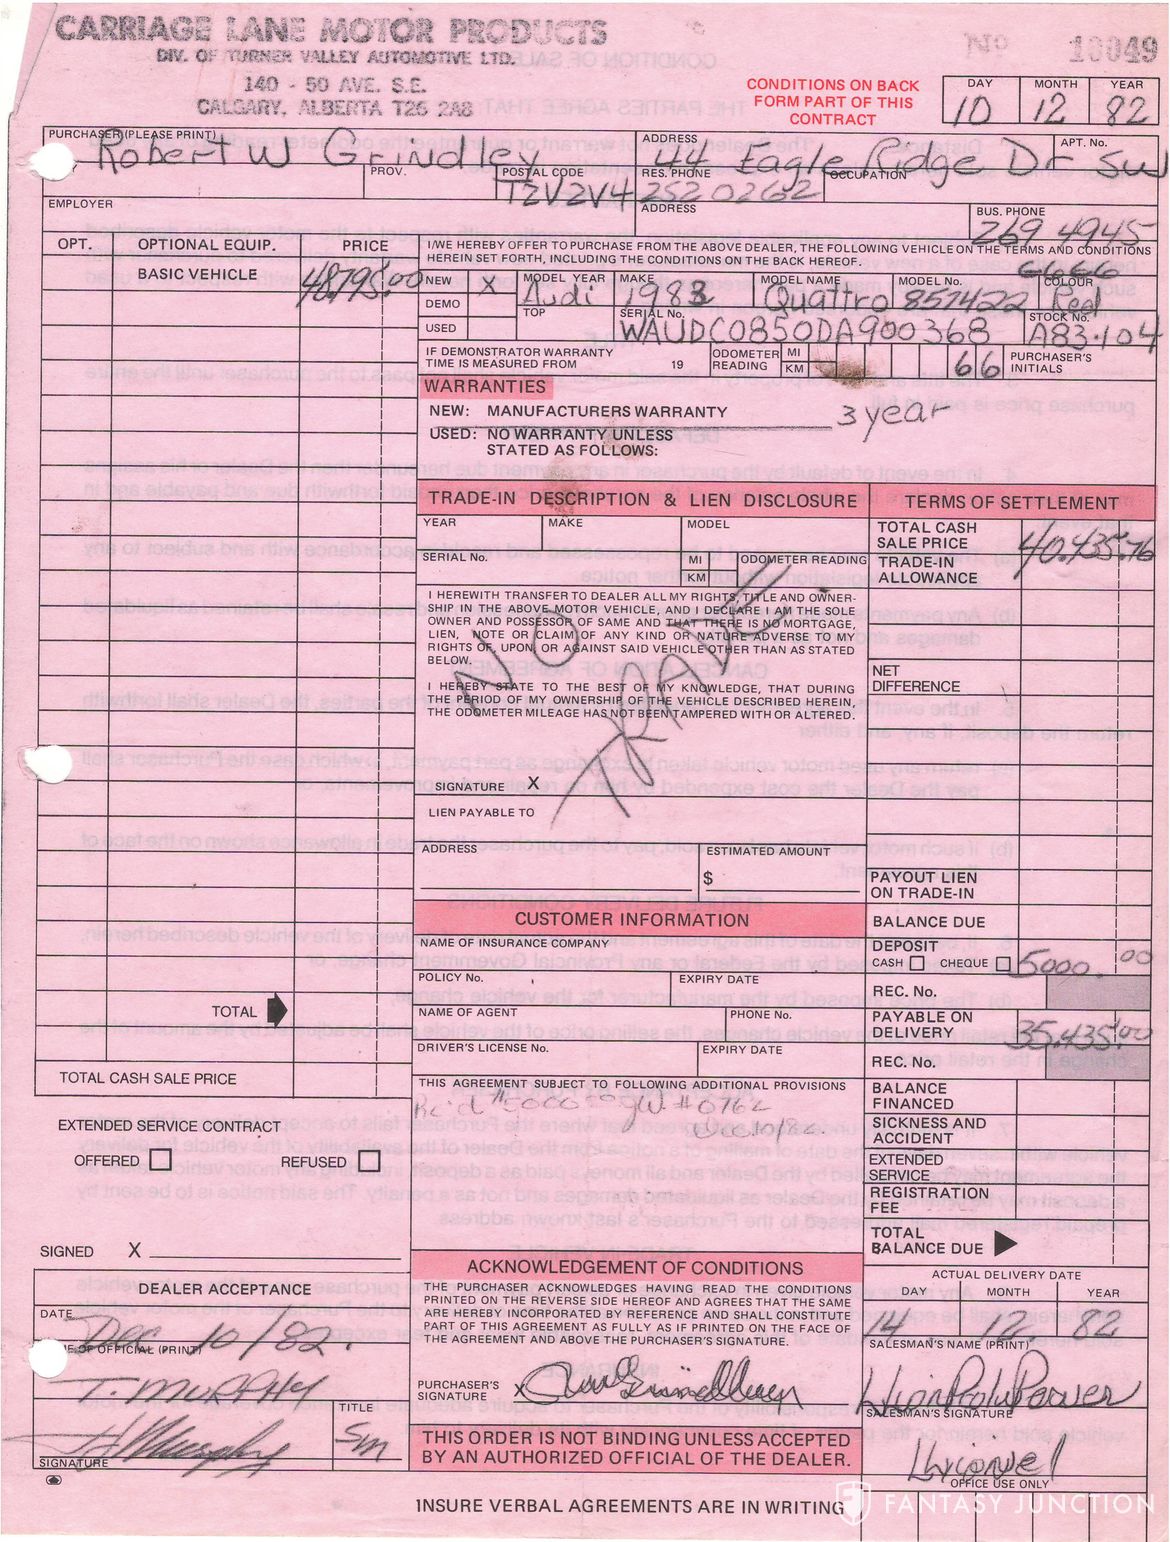 CARRIAGE LANE MOTOR PRODUCTS
DIV. OF TURNER VALLEY AUTOMOTIVE LTD.
140 - 50 AVE. S.E.
CALGARY, ALBERTA T2S 2A8
No 10049
CONDITIONS ON BACK
FORM PART OF THIS
CONTRACT
DAY MONTH YEAR
10 12 82
PURCHASER (PLEASE PRINT) ADDRESS APT. No.
Robert W Grindley 44 Eagle Ridge Dr SW
PROV. POSTAL CODE RES. PHONE OCCUPATION
T2V2V4 252 0262
EMPLOYER ADDRESS BUS. PHONE
269 4945
OPT. OPTIONAL EQUIP. PRICE
BASIC VEHICLE 48,795.00
TOTAL
TOTAL CASH SALE PRICE
I/WE HEREBY OFFER TO PURCHASE FROM THE ABOVE DEALER, THE FOLLOWING VEHICLE ON THE TERMS AND CONDITIONS
HEREIN SET FORTH, INCLUDING THE CONDITIONS ON THE BACK HEREOF.
NEW X MODEL YEAR MAKE MODEL NAME MODEL No. COLOUR
Audi 1983 Quattro 857422 Red
DEMO TOP SERIAL No. STOCK No.
USED WAUDC0850DA900368 A83-104
IF DEMONSTRATOR WARRANTY
TIME IS MEASURED FROM 19 ODOMETER READING MI KM 66 PURCHASER'S INITIALS
WARRANTIES
NEW: MANUFACTURERS WARRANTY 3 year
USED: NO WARRANTY UNLESS
STATED AS FOLLOWS:
TRADE-IN DESCRIPTION & LIEN DISCLOSURE
YEAR MAKE MODEL
SERIAL No. MI KM ODOMETER READING
I HEREWITH TRANSFER TO DEALER ALL MY RIGHTS, TITLE AND OWNER-
SHIP IN THE ABOVE MOTOR VEHICLE, AND I DECLARE I AM THE SOLE
OWNER AND POSSESSOR OF SAME AND THAT THERE IS NO MORTGAGE,
LIEN, NOTE OR CLAIM OF ANY KIND OR NATURE ADVERSE TO MY
RIGHTS OF, UPON, OR AGAINST SAID VEHICLE OTHER THAN AS STATED
BELOW.
I HEREBY STATE TO THE BEST OF MY KNOWLEDGE, THAT DURING
THE PERIOD OF MY OWNERSHIP OF THE VEHICLE DESCRIBED HEREIN,
THE ODOMETER MILEAGE HAS NOT BEEN TAMPERED WITH OR ALTERED.
NO TRADE
SIGNATURE X
LIEN PAYABLE TO
ADDRESS ESTIMATED AMOUNT
$
CUSTOMER INFORMATION
NAME OF INSURANCE COMPANY
POLICY No. EXPIRY DATE
NAME OF AGENT PHONE No.
DRIVER'S LICENSE No. EXPIRY DATE
THIS AGREEMENT SUBJECT TO FOLLOWING ADDITIONAL PROVISIONS
Dec. 10/82
TERMS OF SETTLEMENT
TOTAL CASH
SALE PRICE 40,435.76
TRADE-IN
ALLOWANCE
NET
DIFFERENCE
PAYOUT LIEN
ON TRADE-IN
BALANCE DUE
DEPOSIT
CASH CHEQUE 5000.00
REC. No.
PAYABLE ON
DELIVERY 35,435.00
REC. No.
BALANCE
FINANCED
SICKNESS AND
ACCIDENT
EXTENDED
SERVICE
REGISTRATION
FEE
TOTAL
BALANCE DUE
EXTENDED SERVICE CONTRACT
OFFERED REFUSED
SIGNED X
DEALER ACCEPTANCE
DATE
Dec 10/82.
OF OFFICIAL (PRINT)
T. MURPHY
TITLE
Sm
SIGNATURE
ACKNOWLEDGEMENT OF CONDITIONS
THE PURCHASER ACKNOWLEDGES HAVING READ THE CONDITIONS
PRINTED ON THE REVERSE SIDE HEREOF AND AGREES THAT THE SAME
ARE HEREBY INCORPORATED BY REFERENCE AND SHALL CONSTITUTE
PART OF THIS AGREEMENT AS FULLY AS IF PRINTED ON THE FACE OF
THE AGREEMENT AND ABOVE THE PURCHASER'S SIGNATURE.
PURCHASER'S
SIGNATURE X
THIS ORDER IS NOT BINDING UNLESS ACCEPTED
BY AN AUTHORIZED OFFICIAL OF THE DEALER.
ACTUAL DELIVERY DATE
DAY MONTH YEAR
14 12 82
SALESMAN'S NAME (PRINT)
SALESMAN'S SIGNATURE
OFFICE USE ONLY
INSURE VERBAL AGREEMENTS ARE IN WRITING
FANTASY JUNCTION